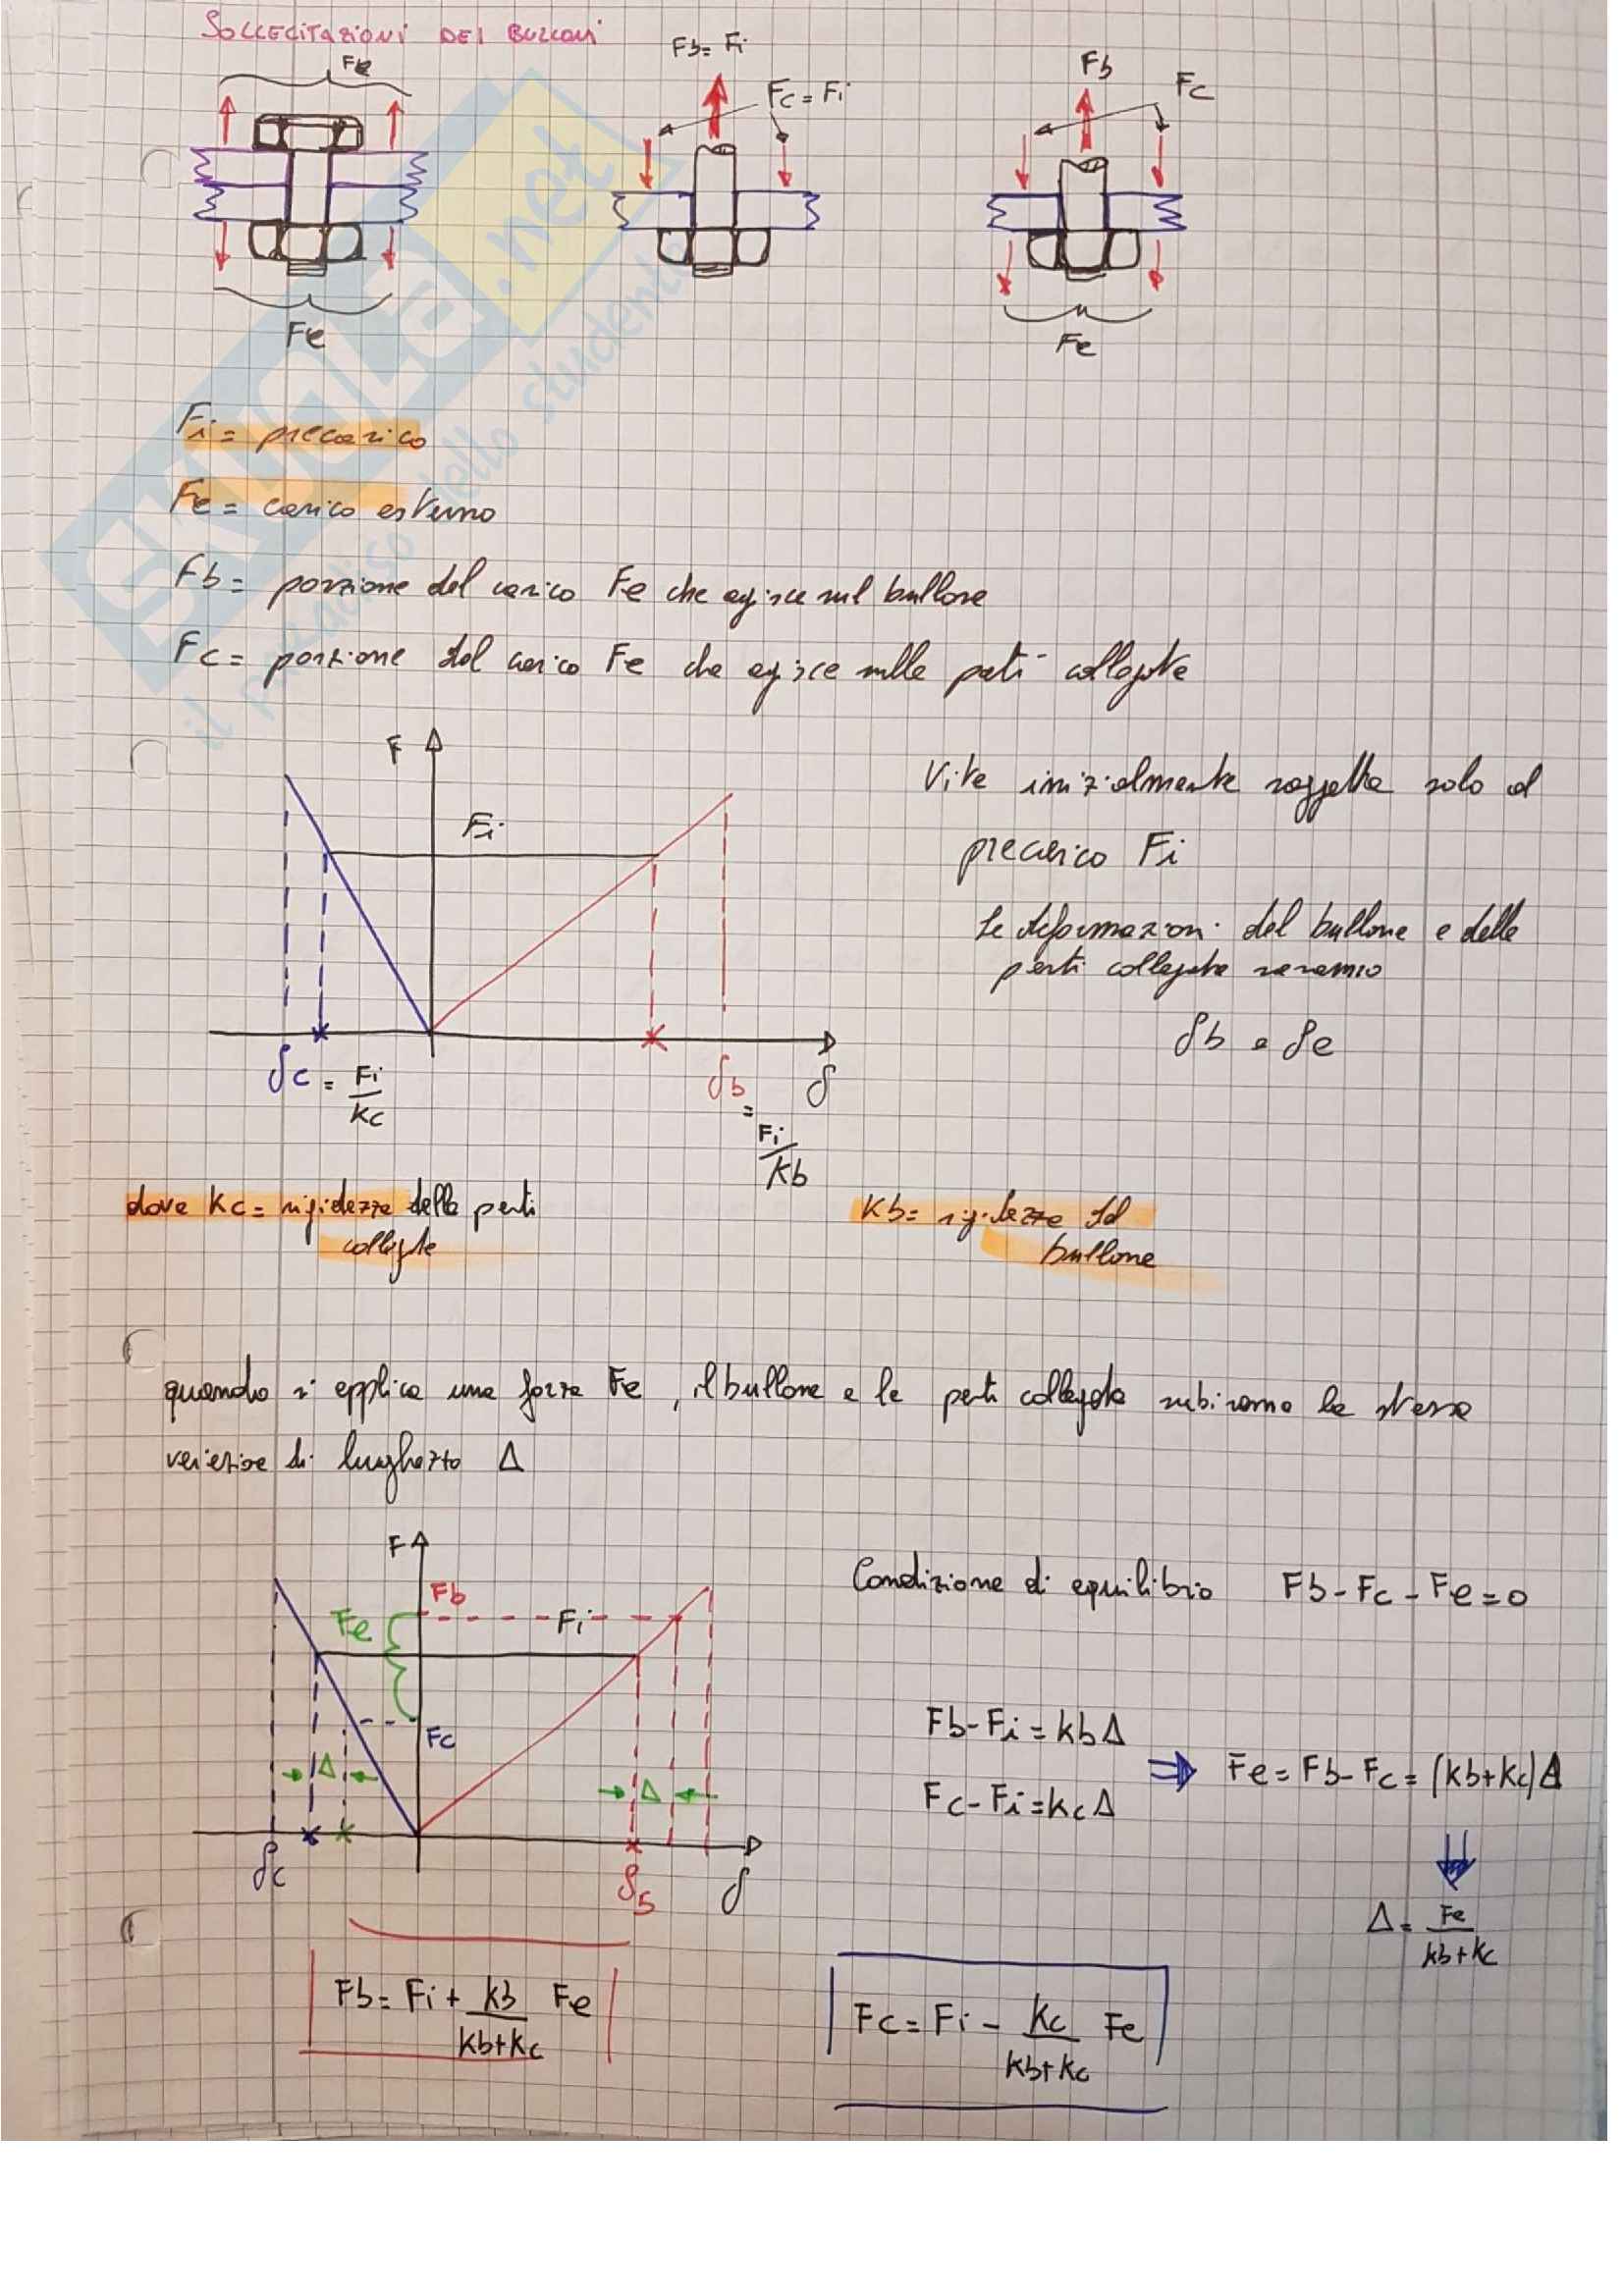 SOLLECITAZIONI DEI BULLONI
Fe
Fb = Fi
Fc = Fi
Fb
Fc
Fe
Fe
Fi = precarico
Fe = carico esterno
Fb = porzione del carico Fe che agisce sul bullone
Fc = porzione del carico Fe che agisce sulle parti collegate
SKUOLA.net
il paradiso dello studente
F
Fi
δc = Fi/kc
δb = Fi/kb
δ
Vite inizialmente soggetta solo al
precarico Fi
Le deformazioni del bullone e delle
parti collegate saranno
δb e δc
dove Kc = rigidezza delle parti
collegate
Kb = rigidezza del
bullone
quando si applica una forza Fe, il bullone e le parti collegate subiranno la stessa
Δ
F
Fb
Fe
Fi
Fc
Δ
Δ
δc
δb
δ
Condizione di equilibrio Fb - Fc - Fe = 0
Fb - Fi = kb Δ
Fc - Fi = kc Δ
⇒ Fe = Fb - Fc = (kb + kc) Δ
Δ = Fe/(kb + kc)
Fb = Fi + kb/(kb + kc) Fe
Fc = Fi - kc/(kb + kc) Fe